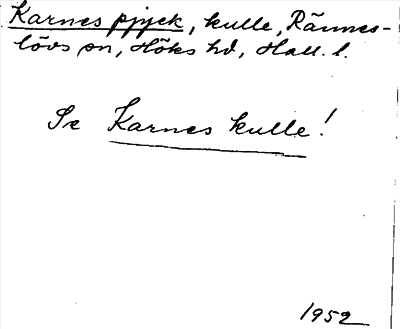 Karnes pjyck, kulle, Rännes-
lövs sn, Höks hd, Hall. l.
Se Karnes kulle!
1952